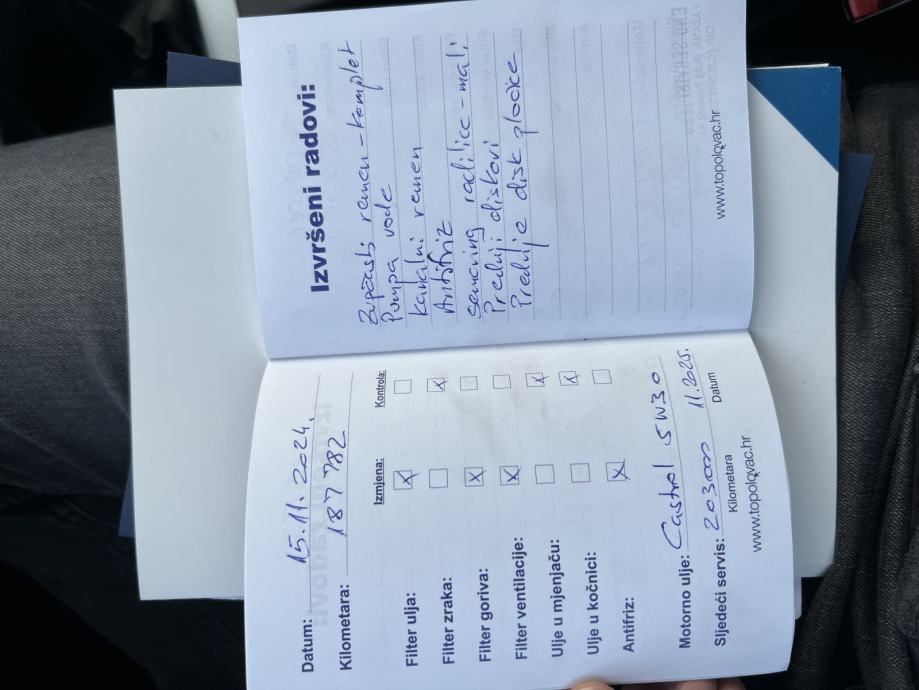 Datum: 15.11.2024.
Kilometara: 187 782
Izmjena: Kontrola:
Filter ulja: X
Filter zraka: X
Filter goriva: X
Filter ventilacije: X
Ulje u mjenjaču: X
Ulje u kočnici: X
Antifriz: X
Motorno ulje: Castrol 5W30
Sljedeći servis: 203000 11.2025.
Kilometara Datum
www.topolovac.hr
Izvršeni radovi:
Zupčasti remen - komplet
Pumpa vode
Kanalni remen
Antifriz
semering radilice - mali
Prednji diskovi
Prednje disk pločice
www.topolovac.hr